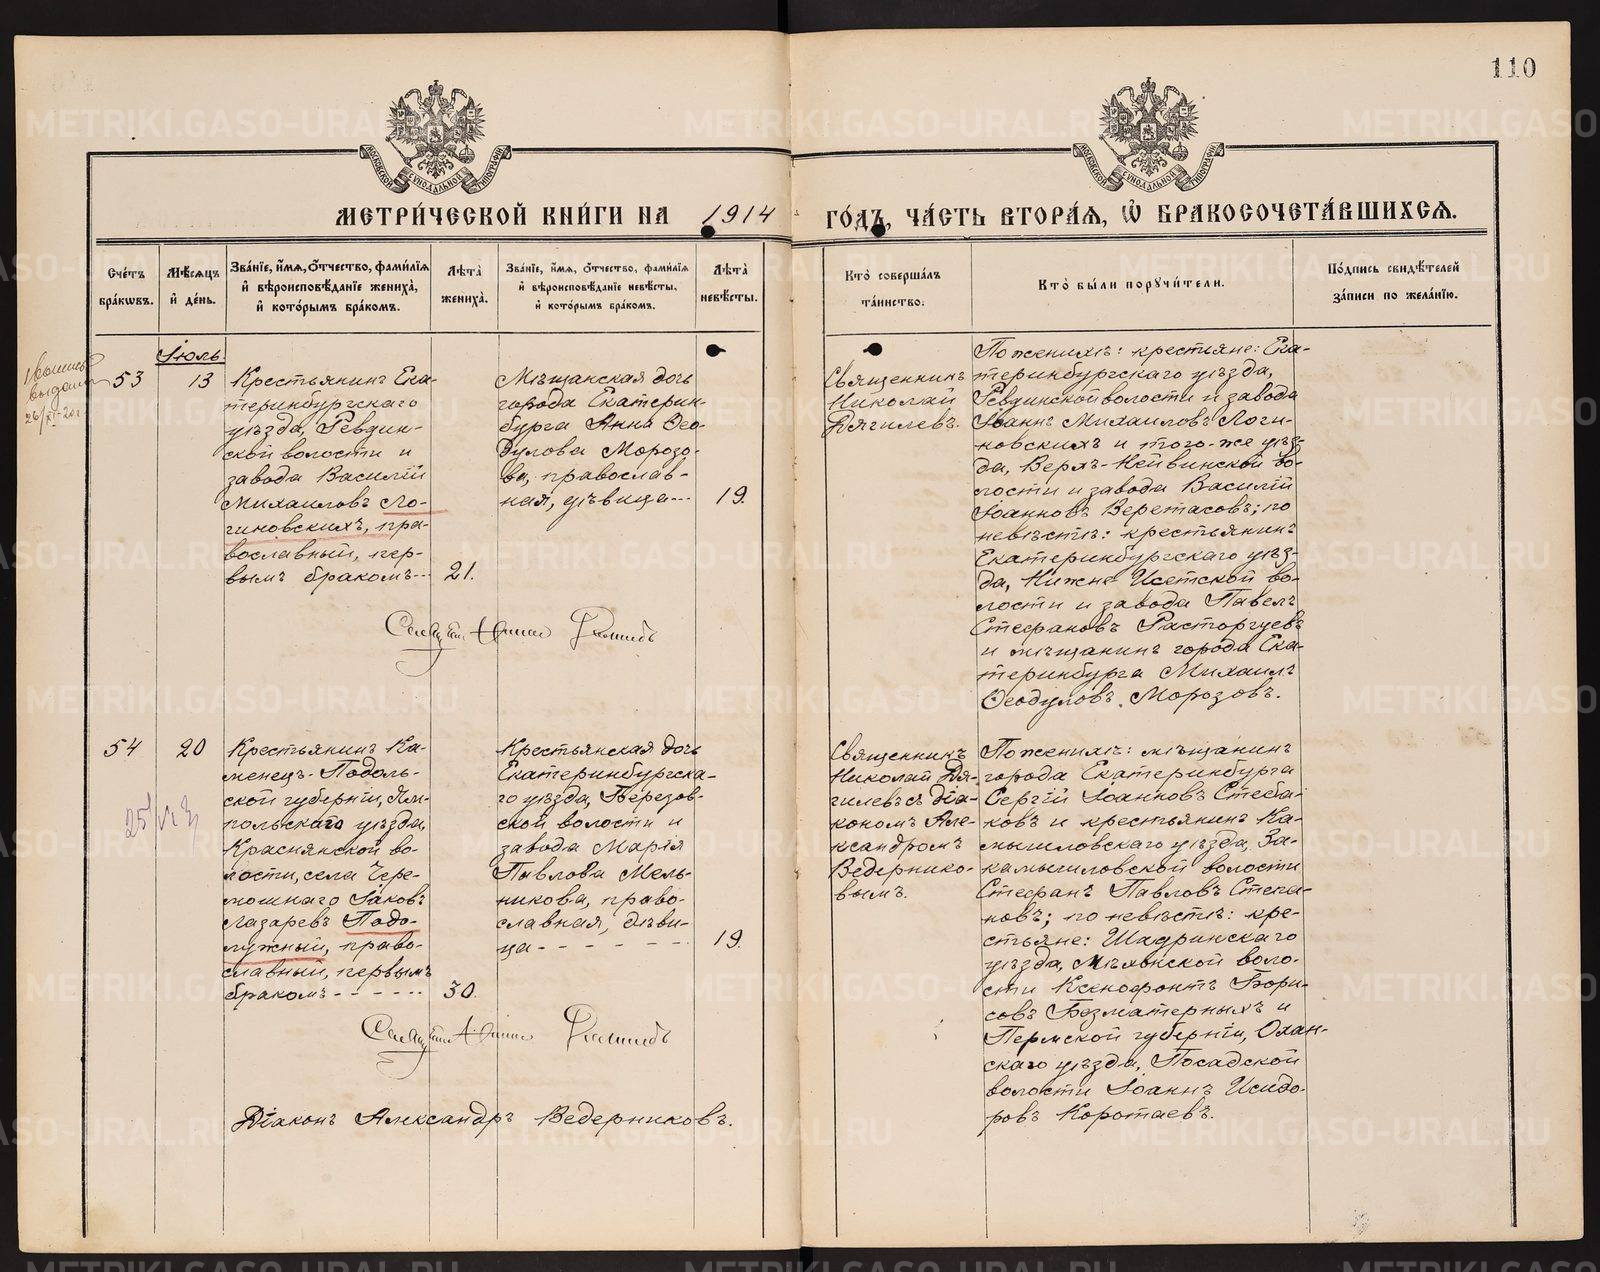 110
МЕТРИ́ЧЕСКОЙ КНИ́ГИ НА 1914 ГО́ДЪ, ЧА́СТЬ ВТОРА́Ѧ, Ѽ БРАКОСОЧЕТА́ВШИХСѦ.
МОСКОВСКОЙ СУНОДАЛЬНОЙ ТИПОГРАФІИ
МОСКОВСКОЙ СУНОДАЛЬНОЙ ТИПОГРАФІИ
Сче́тъ
бра́кѡвъ.
Мѣ́сѧцъ
и҆ де́нь.
Зва́нїе, и҆́мѧ, ѻ҆́тчество, фами́лїѧ
и҆ вѣроисповѣ́данїе жениха̀,
и҆ кото́рымъ бра́комъ.
Лѣ́та
жениха̀.
Зва́нїе, и҆́мѧ, ѻ҆́тчество, фами́лїѧ
и҆ вѣроисповѣ́данїе невѣ́сты,
и҆ кото́рымъ бра́комъ.
Лѣ́та
невѣ́сты.
Кто̀ соверша́лъ
та́инство.
Кто̀ бы́ли поручи́тели.
По́дпись свидѣ́телей
за́писи по жела́нїю.
выдана
53
Іюль
13
Крестьянинъ Ека-
теринбургскаго
уѣзда, Ревдин-
ской волости и
завода Василій
Михаиловъ Ло-
гиновскихъ, пра-
вославный, пер-
вымъ бракомъ---
21.
Мѣщанская дочь
города Екатерин-
бурга Анна Ѳео-
дулова Морозо-
ва, православ-
ная, дѣвица---
19.
Священникъ
Николай
Дягилевъ.
По женихѣ: крестьяне: Ека-
теринбургскаго уѣзда,
Ревдинской волости и завода
Іоаннъ Михаиловъ Логи-
новскихъ и того-же уѣз-
да, Верхъ-Нейвинской во-
лости и завода Василій
Іоанновъ Веретасовъ; по
невѣстѣ: крестьянинъ
Екатеринбургскаго уѣз-
да, Нижне Исетской во-
лости и завода Павелъ
Стефановъ Расторгуевъ
и мѣщанинъ города Ека-
теринбурга Михаилъ
Ѳеодуловъ Морозовъ.
54
20
Крестьянинъ Ка-
менецъ-Подоль-
ской губерніи, Ям-
польскаго уѣзда,
Краснянской во-
лости, села Чере-
мошнаго Іаковъ
Лазаревъ Подо-
лужный, право-
славный, первымъ
бракомъ------
30.
Крестьянская дочь
Екатеринбургска-
го уѣзда, Березов-
ской волости и
завода Марія
Павлова Мель-
никова, право-
славная, дѣви-
ца------
19.
Священникъ
Николай Дя-
гилевъ съ діа-
кономъ Але-
ксандромъ
Ведернико-
вымъ.
По женихѣ: мѣщанинъ
города Екатеринбурга
Сергій Іоанновъ Стефа-
новъ и крестьянинъ Ка-
мышловскаго уѣзда, За-
камышловской волости
Стефанъ Павловъ Степа-
новъ; по невѣстѣ: кре-
стьяне: Шадринскаго
уѣзда, Мѣхонской воло-
сти Ксенофонтъ Бори-
совъ Безматерныхъ и
Пермской губерніи, Охан-
скаго уѣзда, Посадской
волости Іоаннъ Исидо-
ровъ Коротаевъ.
Діаконъ Александръ Ведерниковъ.
METRIKI.GASO-URAL.RU